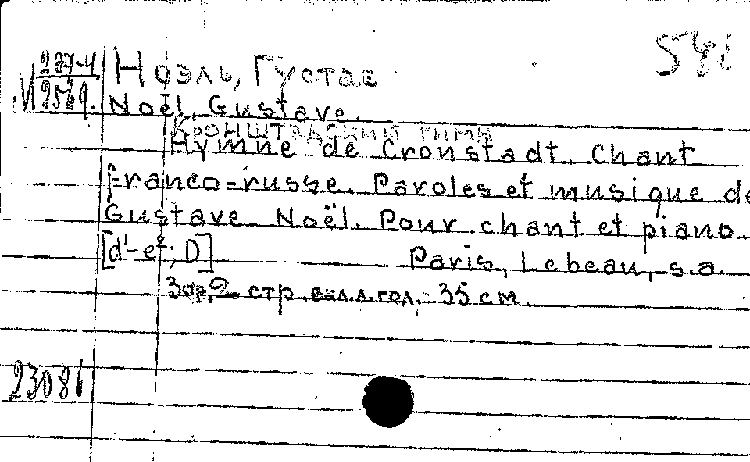 Ноэль, Густав
Noël, Gustave.
Кронштадский гимн
Hymne de Cronstadt. Chant
franco-russe. Paroles et musique de
Gustave Noël. Pour chant et piano.
[d¹-e²; D] Paris, Lebeau, s.a.
стр. вкл. л. гол. 35 см.
23081